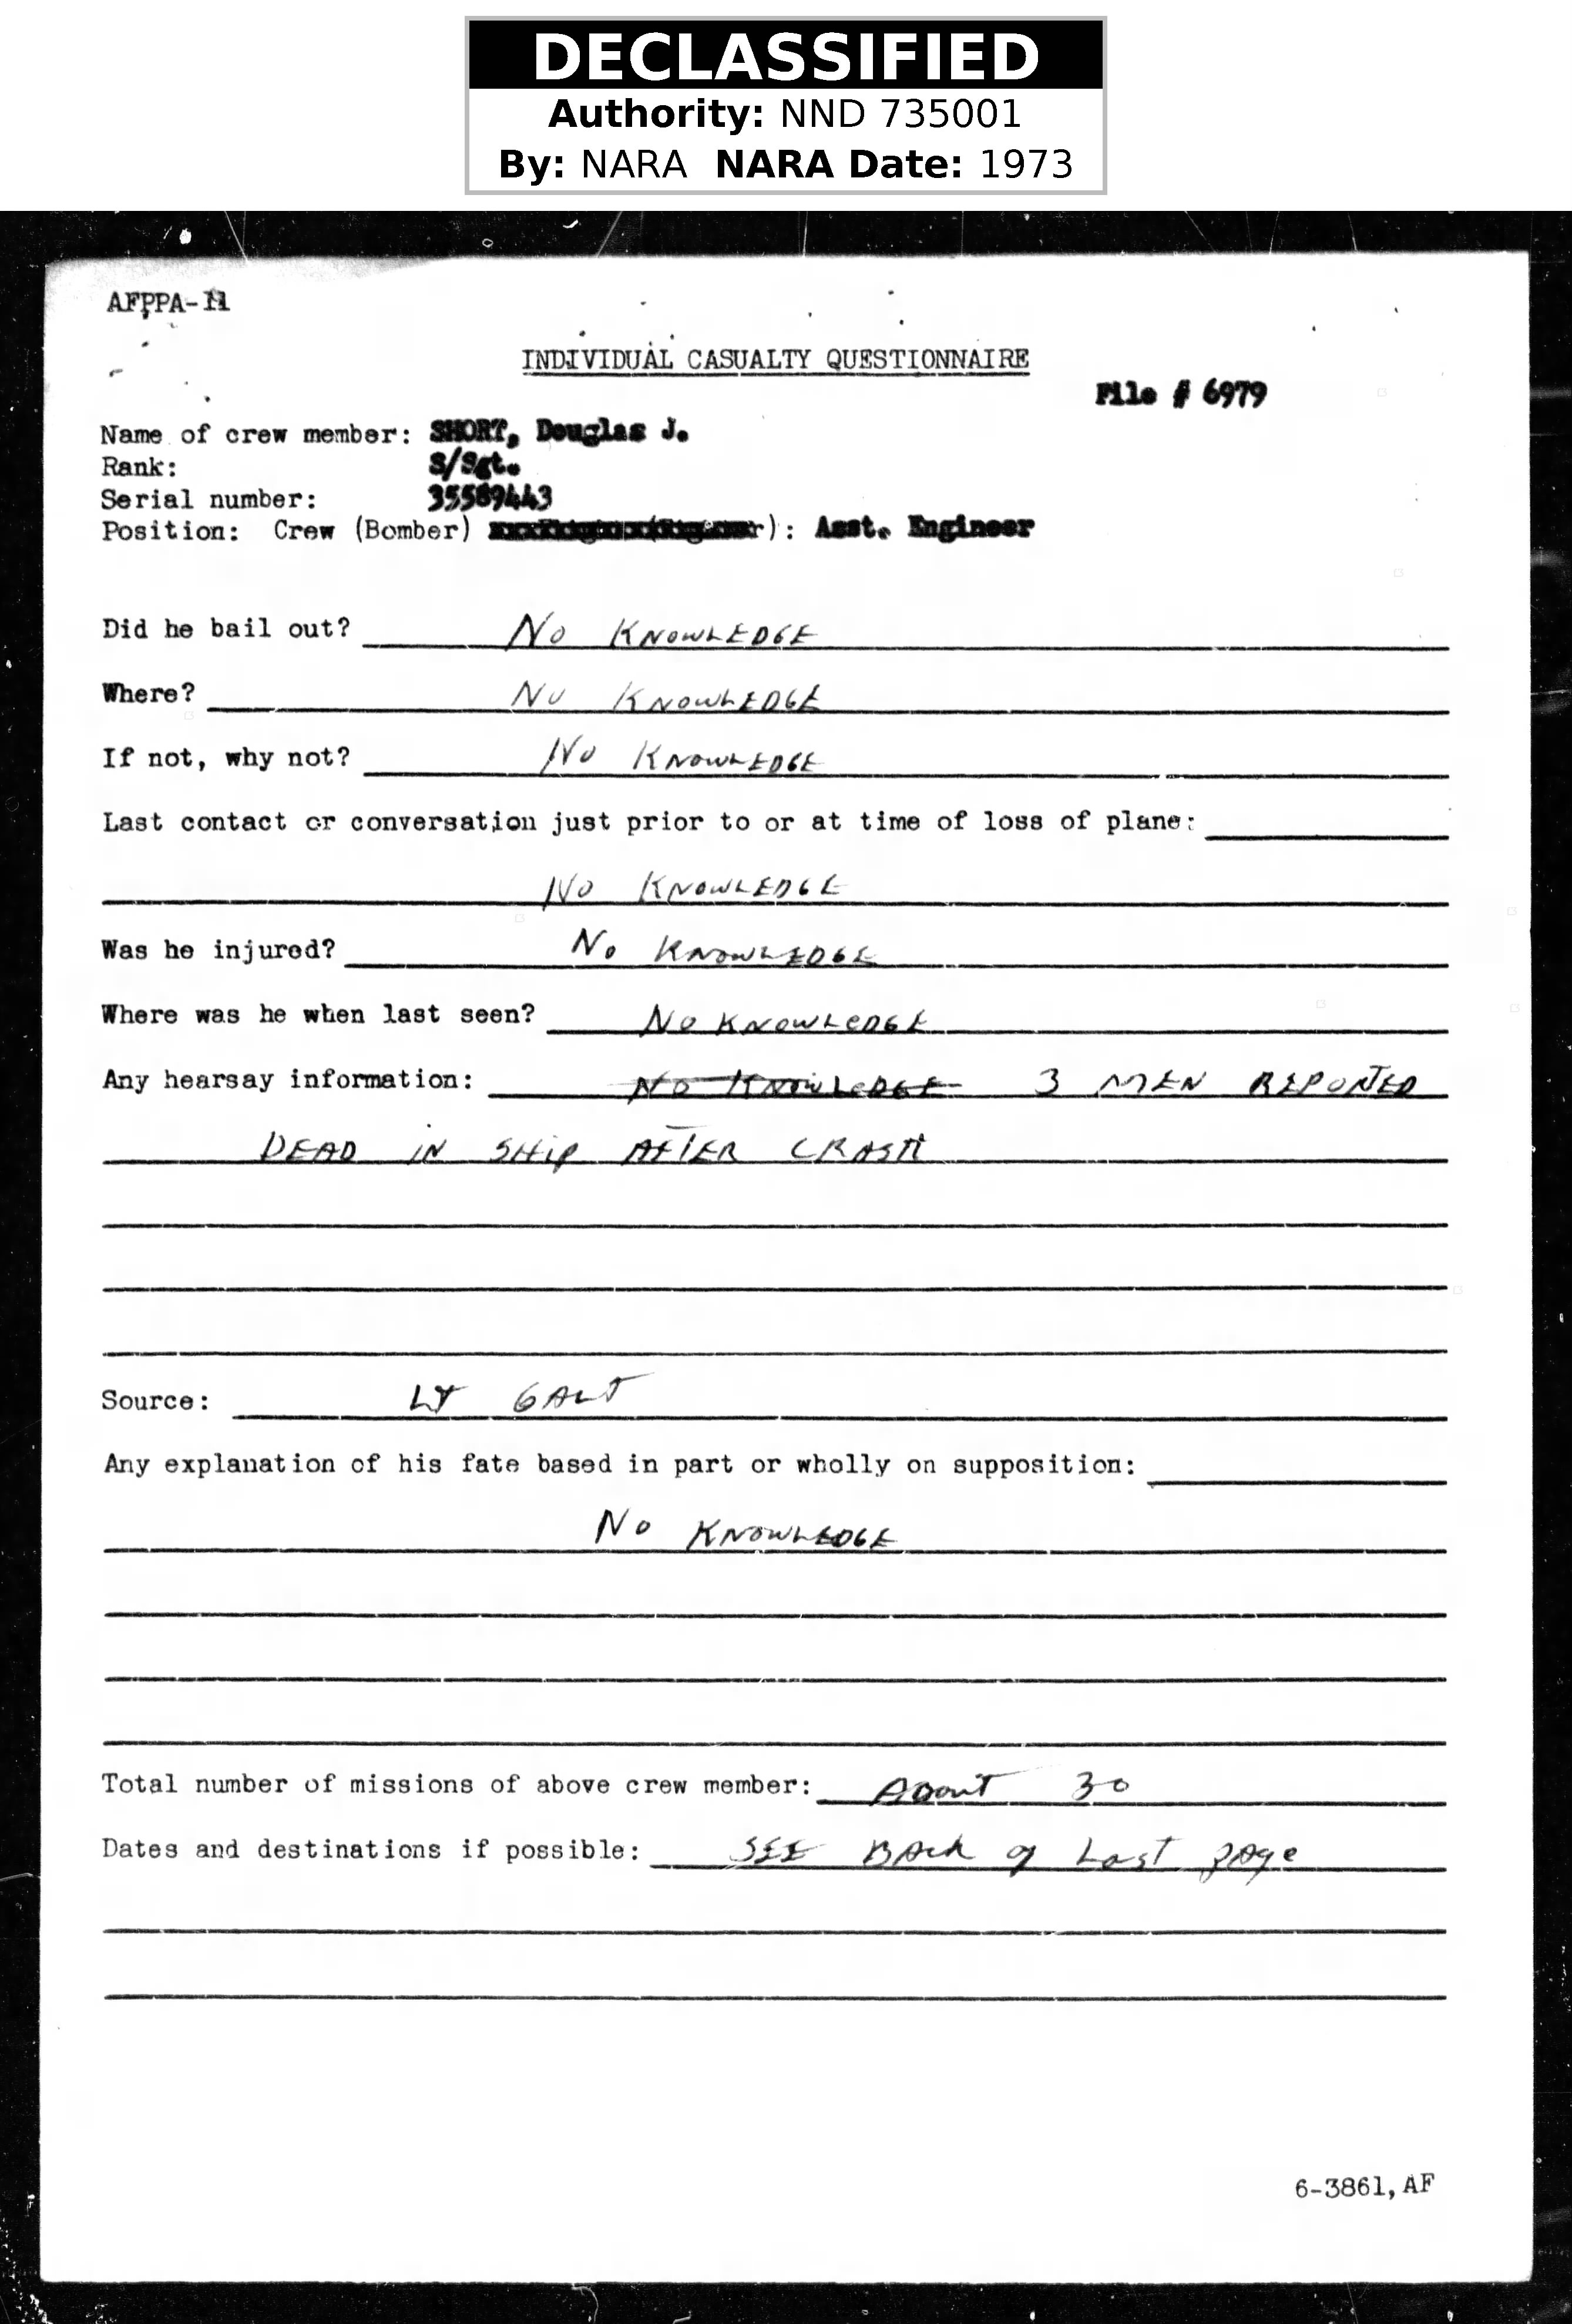 DECLASSIFIED
Authority: NND 735001
By: NARA NARA Date: 1973
AFPPA-11
INDIVIDUAL CASUALTY QUESTIONNAIRE
File # 6979
Name of crew member: SHORT, Douglas J.
Rank: S/Sgt.
Serial number: 35589443
Position: Crew (Bomber) ): Asst. Engineer
Did he bail out? NO KNOWLEDGE
Where? NO KNOWLEDGE
If not, why not? NO KNOWLEDGE
Last contact or conversation just prior to or at time of loss of plane:
NO KNOWLEDGE
Was he injured? NO KNOWLEDGE
Where was he when last seen? NO KNOWLEDGE
Any hearsay information: NO KNOWLEDGE 3 MEN REPORTED
DEAD IN SHIP AFTER CRASH
Source: LT GALT
Any explanation of his fate based in part or wholly on supposition:
NO KNOWLEDGE
Total number of missions of above crew member: About 30
Dates and destinations if possible: SEE BACK of Last page
6-3861, AF